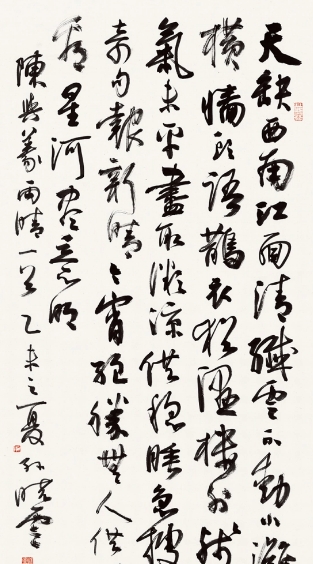 天缺西南江面清纖雲不動小灘
橫墻頭語鵲衣猶濕樓外殘
氣未平盡取微涼供穩睡急搜
奇句報新晴今宵絕勝無人供
看星河盡意明
陳與義雨晴一首乙未之夏孫曉雲